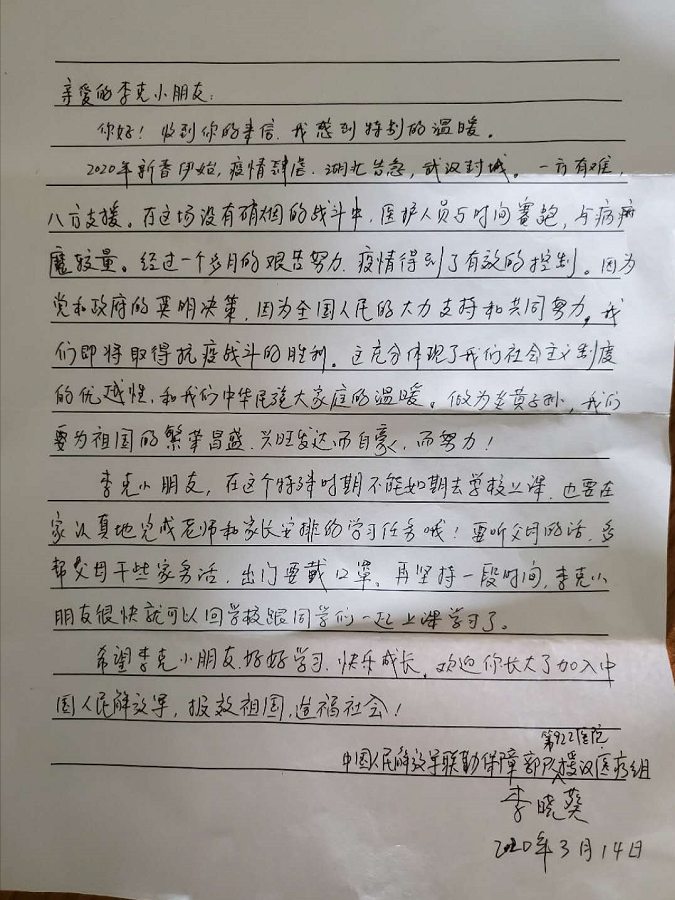 亲爱的李克小朋友:
你好!收到你的来信,我感到特别的温暖。
2020年新春伊始,疫情肆虐,湖北告急,武汉封城。一方有难,
八方支援。在这场没有硝烟的战斗中,医护人员与时间赛跑,与病
魔较量。经过一个多月的艰苦努力,疫情得到了有效的控制。因为
党和政府的英明决策,因为全国人民的大力支持和共同努力,我
们即将取得抗疫战斗的胜利。这充分体现了我们社会主义制度
的优越性,和我们中华民族大家庭的温暖。做为炎黄子孙,我们
要为祖国的繁荣昌盛、兴旺发达而自豪,而努力!
李克小朋友,在这个特殊时期不能如期去学校上课,也要在
家认真地完成老师和家长安排的学习任务哦!要听父母的话,多
帮父母干些家务活,出门要戴口罩。再坚持一段时间,李克小
朋友很快就可以回学校跟同学们一起上课学习了。
希望李克小朋友好好学习,快乐成长,欢迎你长大了加入中
国人民解放军,报效祖国,造福社会!
第922医院
中国人民解放军联勤保障部队援汉医疗组
李晓葵
2020年3月14日